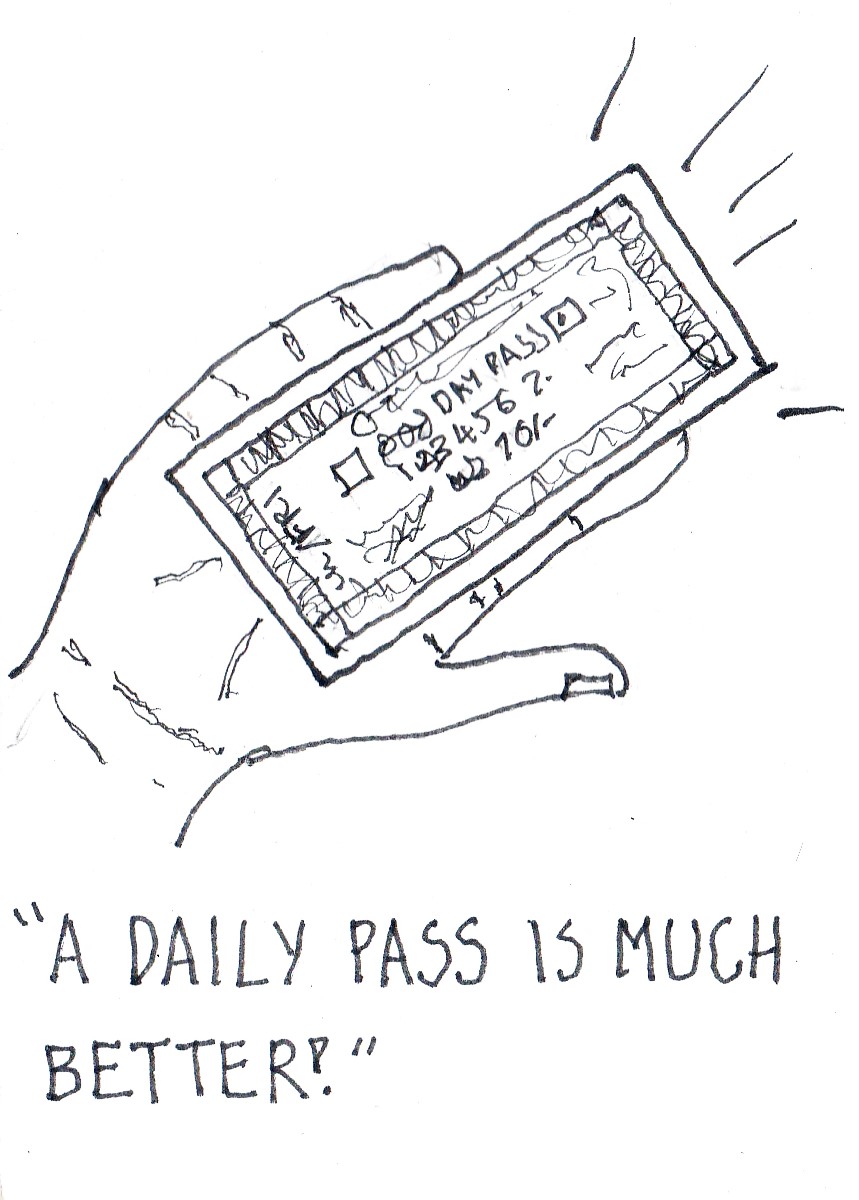 DAY PASS
123456 2.
70/-
/APRI
"A DAILY PASS IS MUCH
BETTER!"